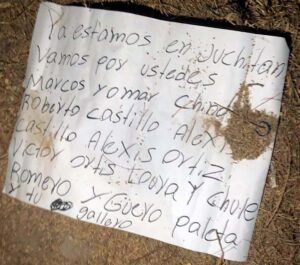 Ya estamos en Juchitan
Vamos por ustedes
Marcos yamar
Roberto Castillo Alexi
Castillo Alexis Ortiz
Victor Ortis Loura y Chule
Romero y Guero paleta
y tu gallero